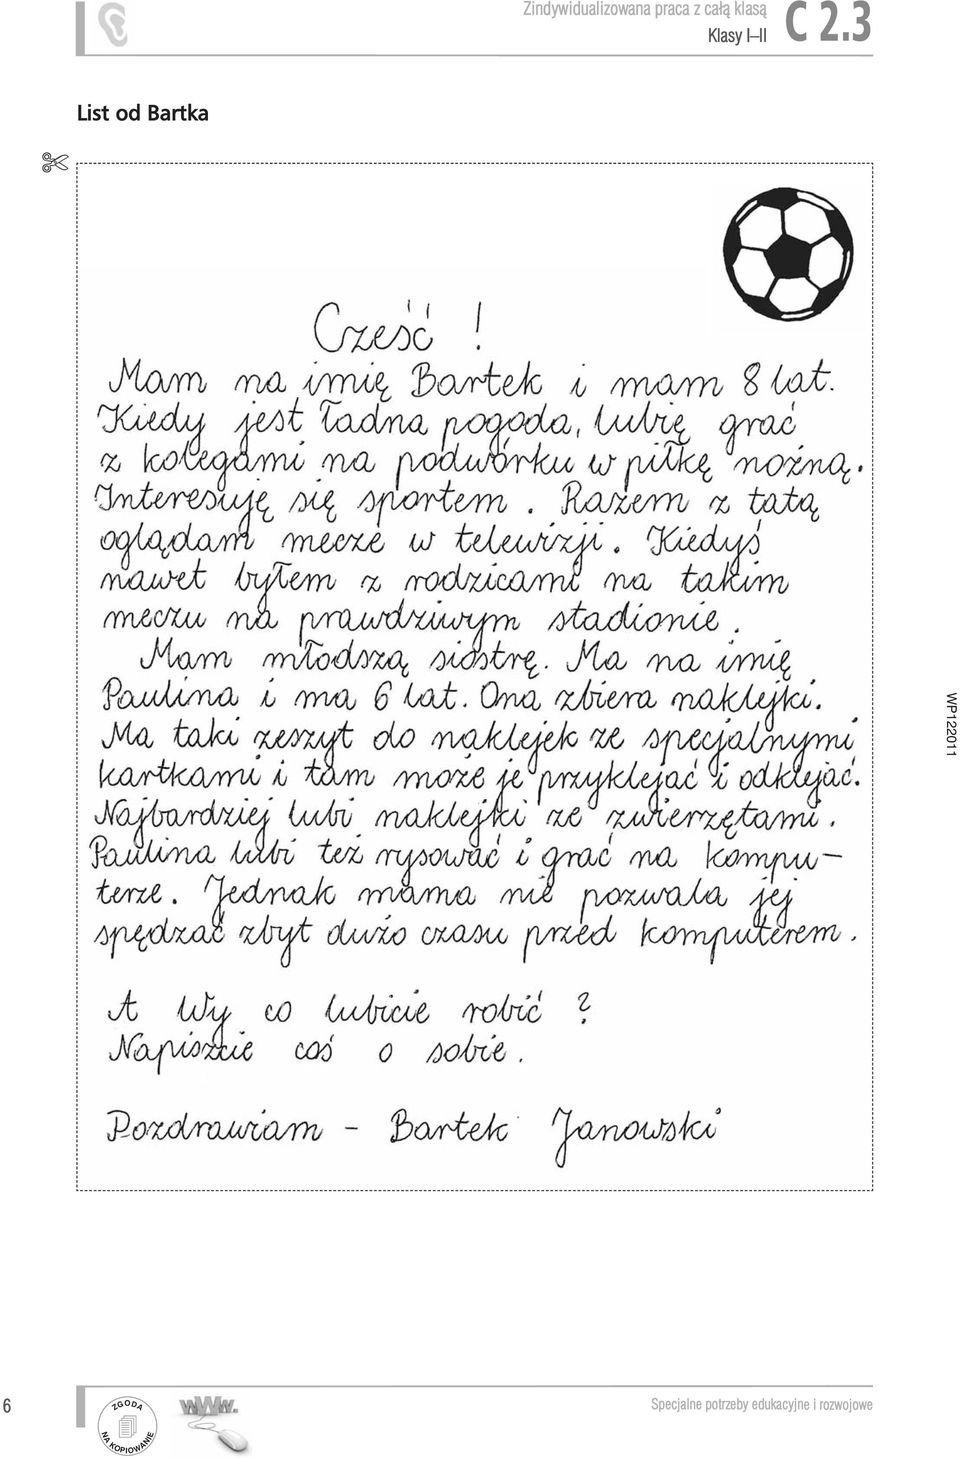 Zindywidualizowana praca z całą klasą
Klasy I–II
C 2.3
List od Bartka
Cześć !
Mam na imię Bartek i mam 8 lat.
Kiedy jest ładna pogoda, lubię grać
z kolegami na podwórku w piłkę nożną.
Interesuję się sportem. Razem z tatą
oglądam mecze w telewizji. Kiedyś
nawet byłem z rodzicami na takim
meczu na prawdziwym stadionie.
Mam młodszą siostrę. Ma na imię
Paulina i ma 6 lat. Ona zbiera naklejki.
Ma taki zeszyt do naklejek ze specjalnymi
kartkami i tam może je przyklejać i odklejać.
Najbardziej lubi naklejki ze zwierzętami.
Paulina lubi też rysować i grać na kompu-
terze. Jednak mama nie pozwala jej
spędzać zbyt dużo czasu przed komputerem.
A Wy co lubicie robić ?
Napiszcie coś o sobie.
Pozdrawiam - Bartek Janowski
WP122011
6
ZGODA
NA KOPIOWANIE
www.
Specjalne potrzeby edukacyjne i rozwojowe